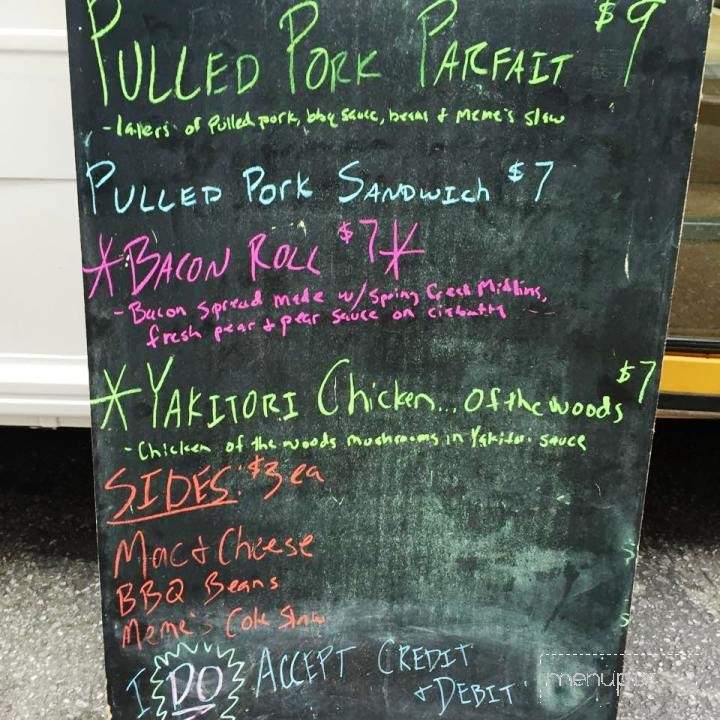 PULLED PORK PARFAIT $9
- layers of Pulled pork, bbq sauce, beans & Meme's Slaw
PULLED PORK SANDWICH $7
*BACON ROLL $7*
- Bacon Spread made w/ Spring Creek Midlins,
fresh pear & pear sauce on ciabatta
*YAKITORI Chicken... Of the woods $7
- Chicken of the woods mushrooms in Yakitori sauce
SIDES: $3 ea
Mac & Cheese
BBQ Beans
Meme's Cole Slaw
I DO ACCEPT CREDIT
& DEBIT